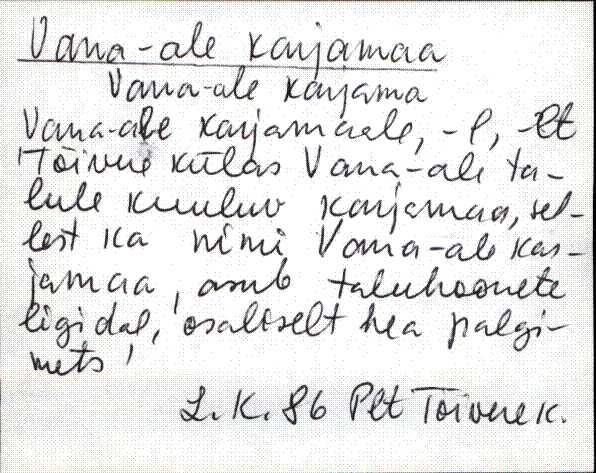 Vana-ale karjamaa
Vana-ale karjama
Vana-ale karjamaale, -l, -lt
Tõivere külas Vana-ale ta-
lule kuuluv karjamaa, sel-
lest ka nimi Vana-ale kar-
jamaa, asub taluhoonete
ligidal, osaliselt hea palgi-
mets
L.K. 86 Plt Tõivere k.